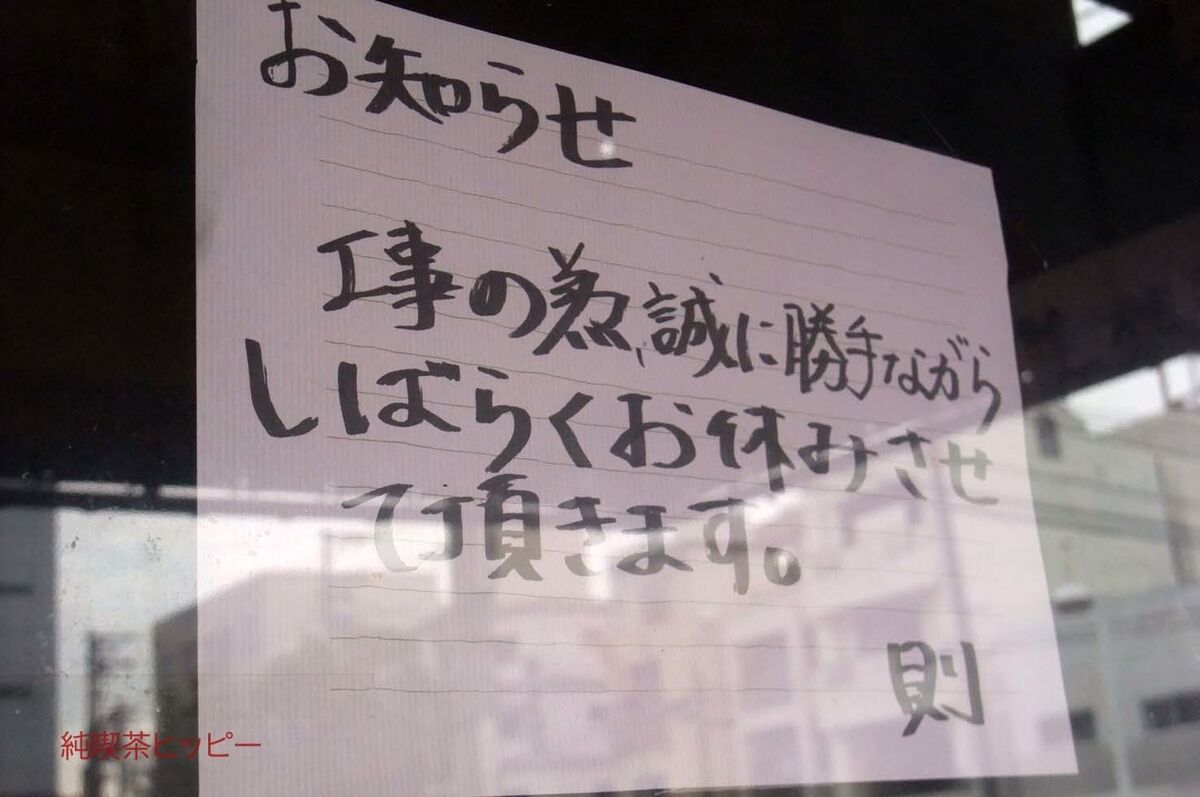 お知らせ
工事の為、誠に勝手ながら
しばらくお休みさせ
て頂きます。
則
純喫茶ヒッピー